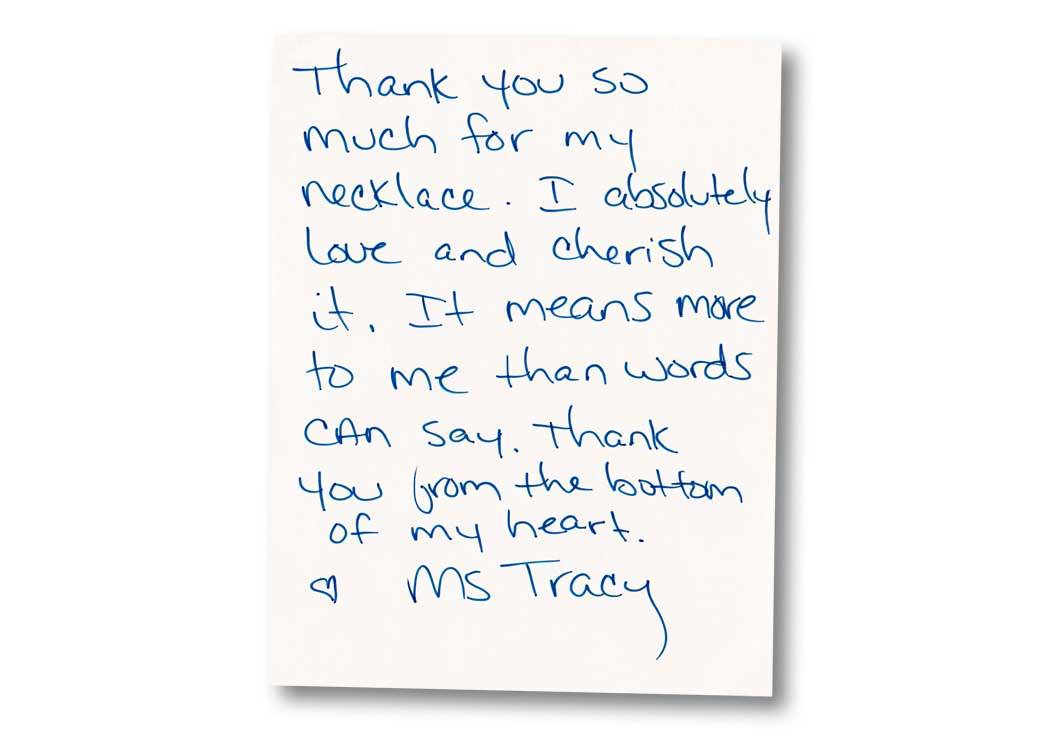 Thank you so
much for my
necklace. I absolutely
love and cherish
it. It means more
to me than words
CAn say. Thank
you from the bottom
of my heart.
♡ Ms Tracy